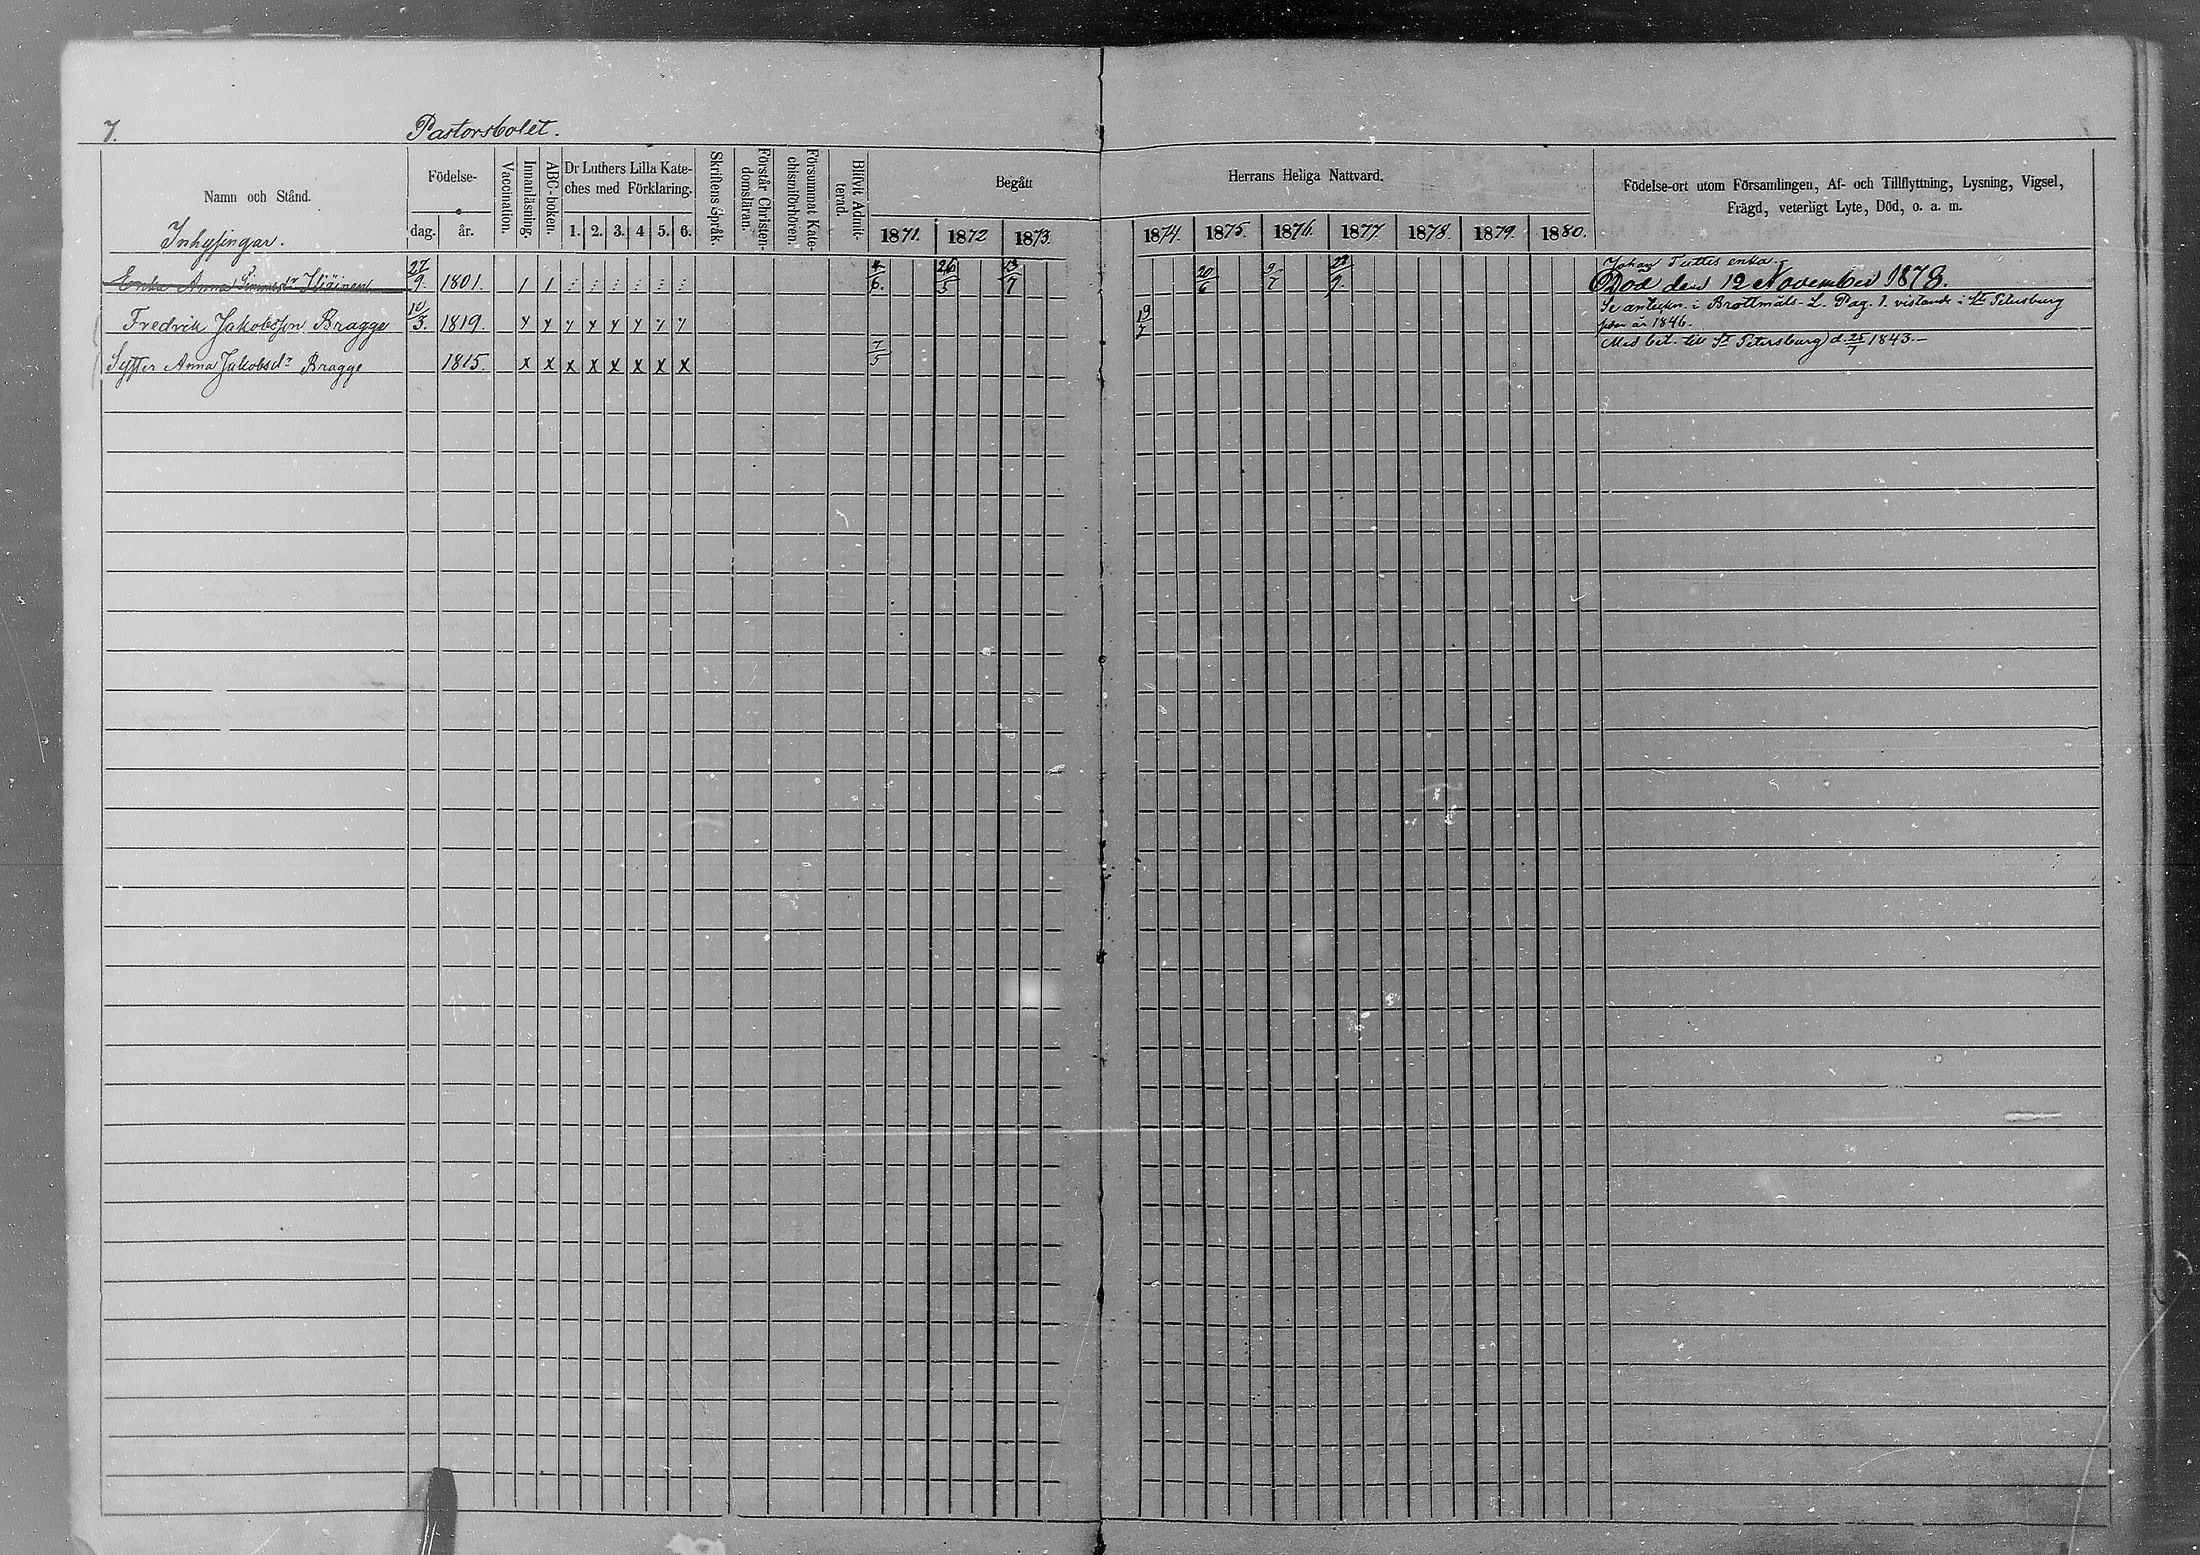 7. Pastorsbolet.
Namn och Stånd.
Inhysingar.
Födelse-
dag. år.
Vaccination.
Innanläsning.
ABC-boken.
Dr Luthers Lilla Kate-
ches med Förklaring.
1. 2. 3. 4 5. 6.
Skriftens Språk.
Förstår Christen-
domsläran.
Försummat Kate-
chismiförhören.
Blifvit Admit-
terad.
Begått Herrans Heliga Nattvard.
1871. 1872 1873. 1874. 1875. 1876. 1877. 1878. 1879. 1880.
Födelse-ort utom Församlingen, Af- och Tillflyttning, Lysning, Vigsel,
Frägd, veterligt Lyte, Död, o. a. m.
Johan enka.
Enka Anna 27/9. 1801. 4/6. 26/5 13/7 20/6 9/7 22/9. Död den 12 November 1878.
Fredrik Jakobsson Bragge 10/3. 1819. 19/7 Se anteckn. i Brottmåls-L. Pag. 1. vistande i St. Petersburg
sedan år 1846.
Syster Anna Jakobsdr Bragge 1815. 7/5 Med bet. till St Petersburg d. 25/7 1843.-